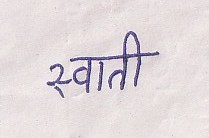 स्वाती